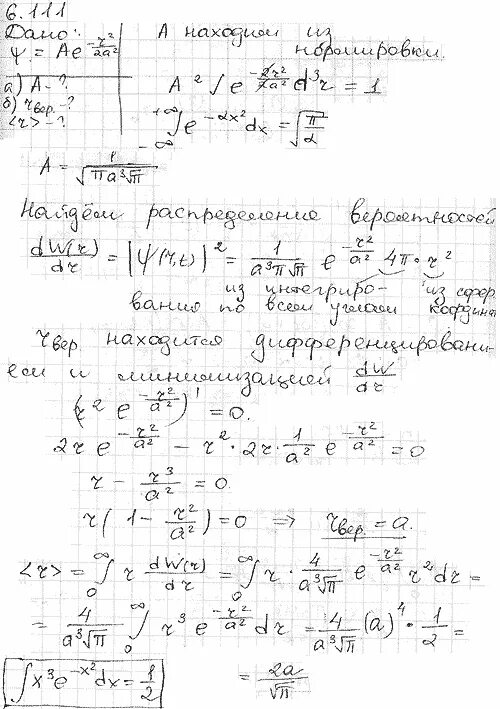 6.111
Дано:
ψ = Ae^(-r²/2a²)
а) A-?
б) rвер.-?
<r>-?
A находим из
нормировки.
A² ∫ e^(-2r²/2a²) d³r = 1
∫_{-∞}^{+∞} e^(-αx²) dx = √(π/α)
A = 1/√(πa³√π)
Найдём распределение вероятностей
dW(r)/dr = |ψ(r,t)|² = 1/(a³π√π) e^(-r²/a²) 4π·r²
из интегриро- из сфер.
вания по всем углам координат
rвер находится дифференцировани-
ем и минимизацией dW/dr
(r² e^(-r²/a²))' = 0.
2r e^(-r²/a²) - r²·2r·1/a² e^(-r²/a²) = 0
r - r³/a² = 0
r(1 - r²/a²) = 0 => rвер. = a.
<r> = ∫_0^∞ r dW(r)/dr = ∫_0^∞ r·4/(a³√π) e^(-r²/a²) r² dr =
= 4/(a³√π) ∫_0^∞ r³ e^(-r²/a²) dr = 4/(a³√π) (a)⁴·1/2 =
∫x³e^(-x²)dx = 1/2
= 2a/√π